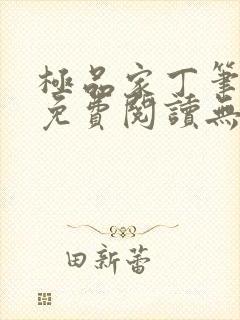 極品家丁筆
免費閱讀無
田新蕾